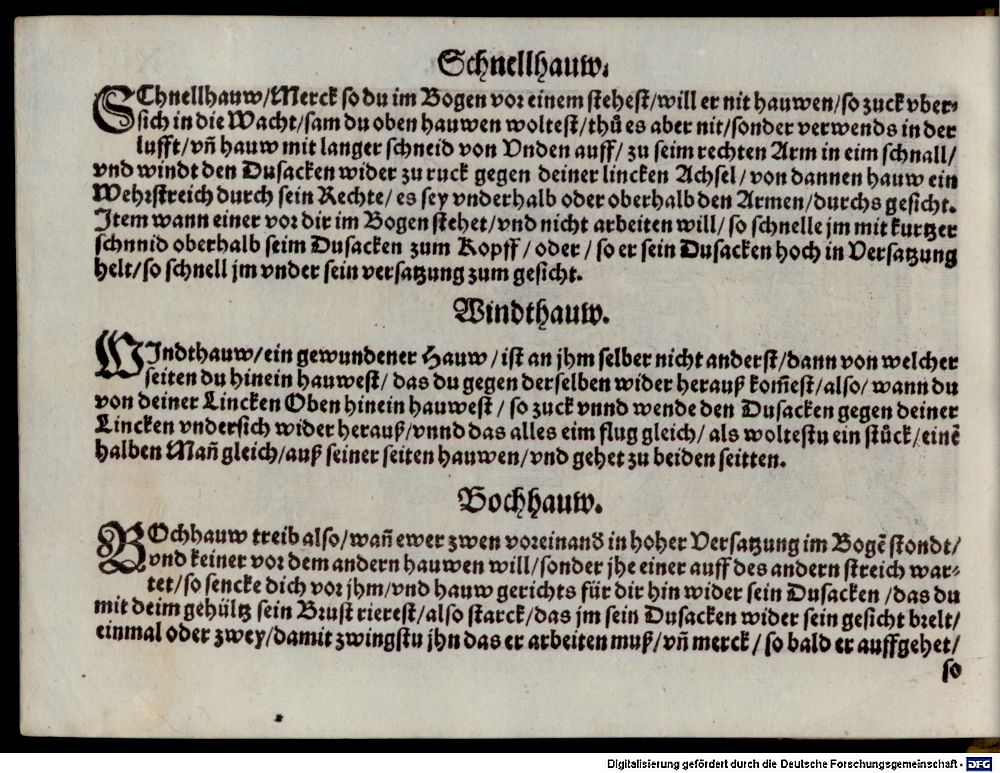 Schnellhauw.
SChnellhauw/Merck so du im Bogen vor einem stehest/will er nit hauwen/so zuck vber-
sich in die Wacht/sam du oben hauwen woltest/thů es aber nit/sonder verwends in der
lufft/vñ hauw mit langer schneid von Vnden auff/ zu seim rechten Arm in eim schnall/
vnd windt den Dusacken wider zu ruck gegen deiner lincken Achsel/von dannen hauw ein
Wehrstreich durch sein Rechte/es sey vnderhalb oder oberhalb den Armen/durchs gesicht.
Item wann einer vor dir im Bogen stehet/vnd nicht arbeiten will/ so schnelle jm mit kurtzer
schnnid oberhalb seim Dusacken zum Kopff/ oder/ so er sein Dusacken hoch in Versatzung
helt/so schnell jm vnder sein versatzung zum gesicht.
Windthauw.
WIndthauw/ein gewundener Hauw/ist an jhm selber nicht anderst/dann von welcher
seiten du hinein hauwest/ das du gegen derselben wider herauß kom̃est/also/ wann du
von deiner Lincken Oben hinein hauwest/ so zuck vnnd wende den Dusacken gegen deiner
Lincken vndersich wider herauß/vnnd das alles eim flug gleich/ als woltestu ein stůck/einẽ
halben Mañ gleich/auß seiner seiten hauwen/vnd gehet zu beiden seitten.
Bochhauw.
BOchhauw treib also/wañ ewer zwen voreinand in hoher Versatzung im Bogẽ stondt/
vnd keiner vor dem andern hauwen will/sonder jhe einer auff des andern streich war-
tet/so sencke dich vor jhm/vnd hauw gerichts für dir hin wider sein Dusacken/das du
mit deim gehültz sein Brust rierest/also starck/das jm sein Dusacken wider sein gesicht brelt/
einmal oder zwey/damit zwingstu jhn das er arbeiten muß/vñ merck/ so bald er auffgehet/
so
Digitalisierung gefördert durch die Deutsche Forschungsgemeinschaft - DFG